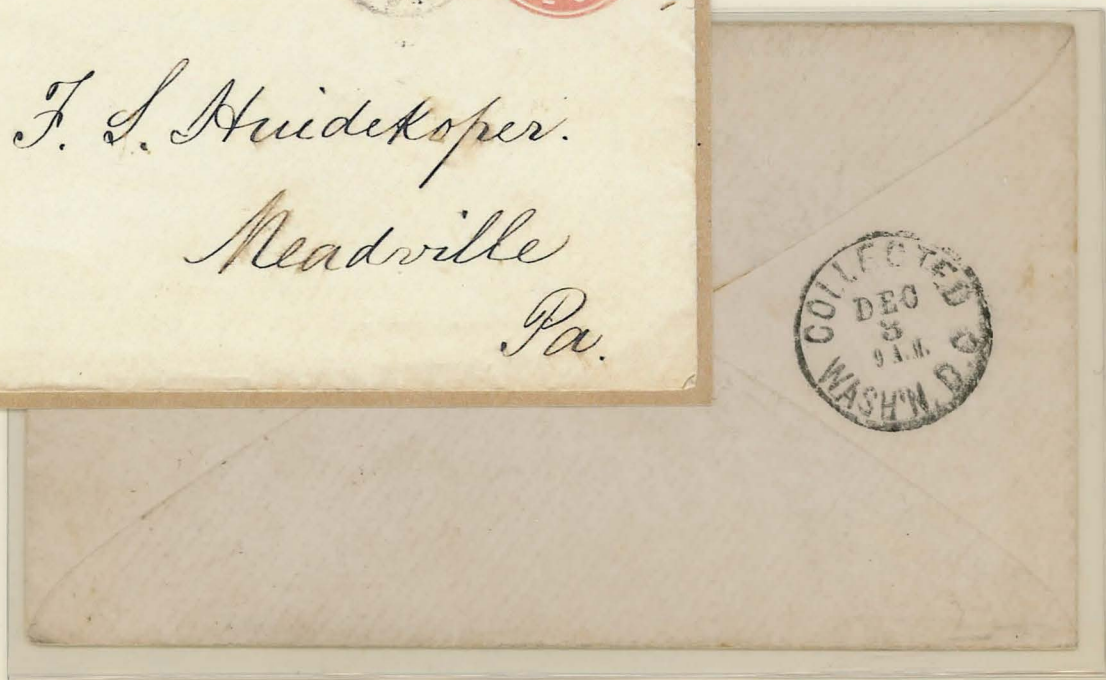 F. S. Huidekoper.
Meadville
Pa.
COLLECTED
DEC
3
9 A.M.
WASH'N. D.C.